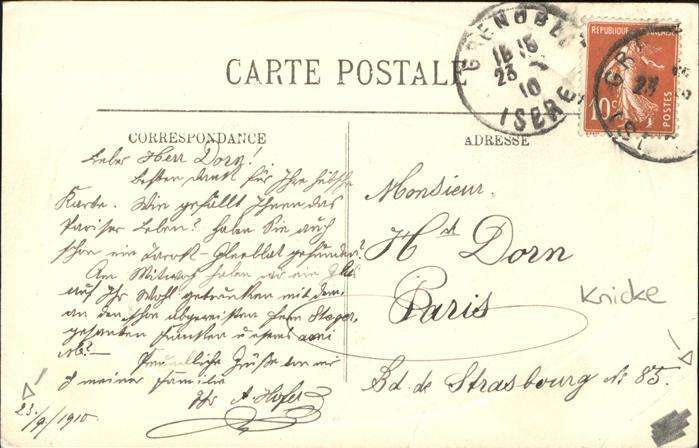 CARTE POSTALE
GRENOBLE
15 15
23
10
ISERE
REPUBLIQUE FRANÇAISE
10c
POSTES
CORRESPONDANCE
ADRESSE
Lieber Herr Dorn!
Besten Dank für Ihre hübsche
Karte. Wie gefällt Ihnen das
Pariser Leben? Haben Sie auch
schon ein gefunden?
Am Mittwoch haben wir ein
auf Ihr Wohl getrunken mit dem
an den abgereisten Herrn
unseres
Freundliche Grüße von mir
& meiner Familie
Ihr A. Hofer
23./9/1910.
Monsieur
Hch Dorn
Paris
Bd. de Strasbourg No 85.
Knicke